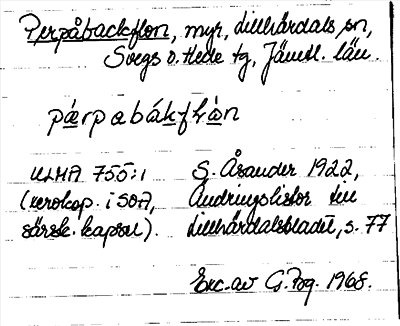 Perpåbackflon, myr, Lillhärdals sn,
Svegs o. Hede tg, Jämtl. län.
pærpabákflòn
ULMA 755:1 S. Åsander 1922,
(xerokop. i SOA, Ändringslistor till
särsk. kapsel). Lillhärdalsbladet, s. 77
Exc. av G. Bg. 1968.